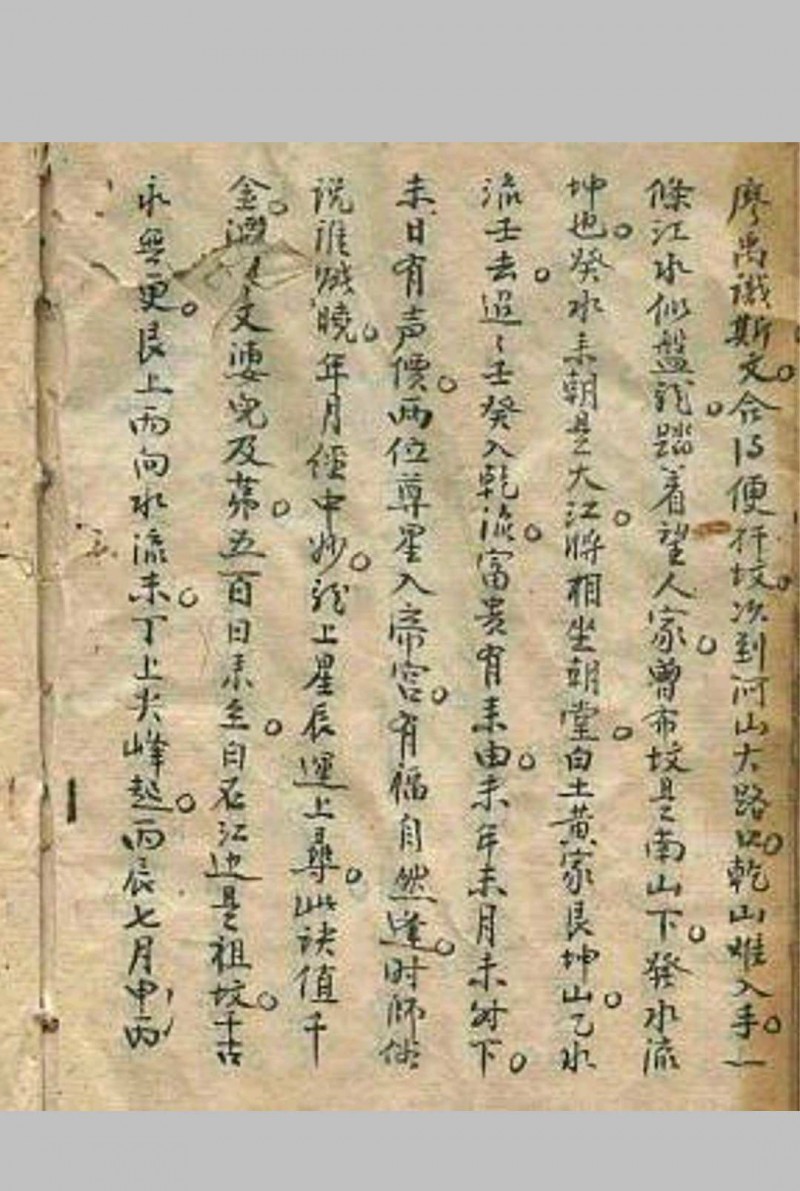 廖禹讖斯文。合is便扦坟。次到河山大路口。乾山唯入手。一
條江水似盤龍。踏着望人家。曾布坟是南山下。癸水流
坤也。癸水来朝是大江。将相坐朝堂。白土黄家艮坤山。乙水
流壬去迢〻。壬癸入乾流。富贵有来由。未年未月未时下。
未日有声價。两位尊星入帝宫。有福自然逢。时师
说谁曉。年月經中妙。龍上星辰運上尋。此訣值千
金。文 兒及第。五百日来至。白石江边是祖坟。千古
永無更。艮上丙向水流未。丁上尖峰起。丙辰七月中丙